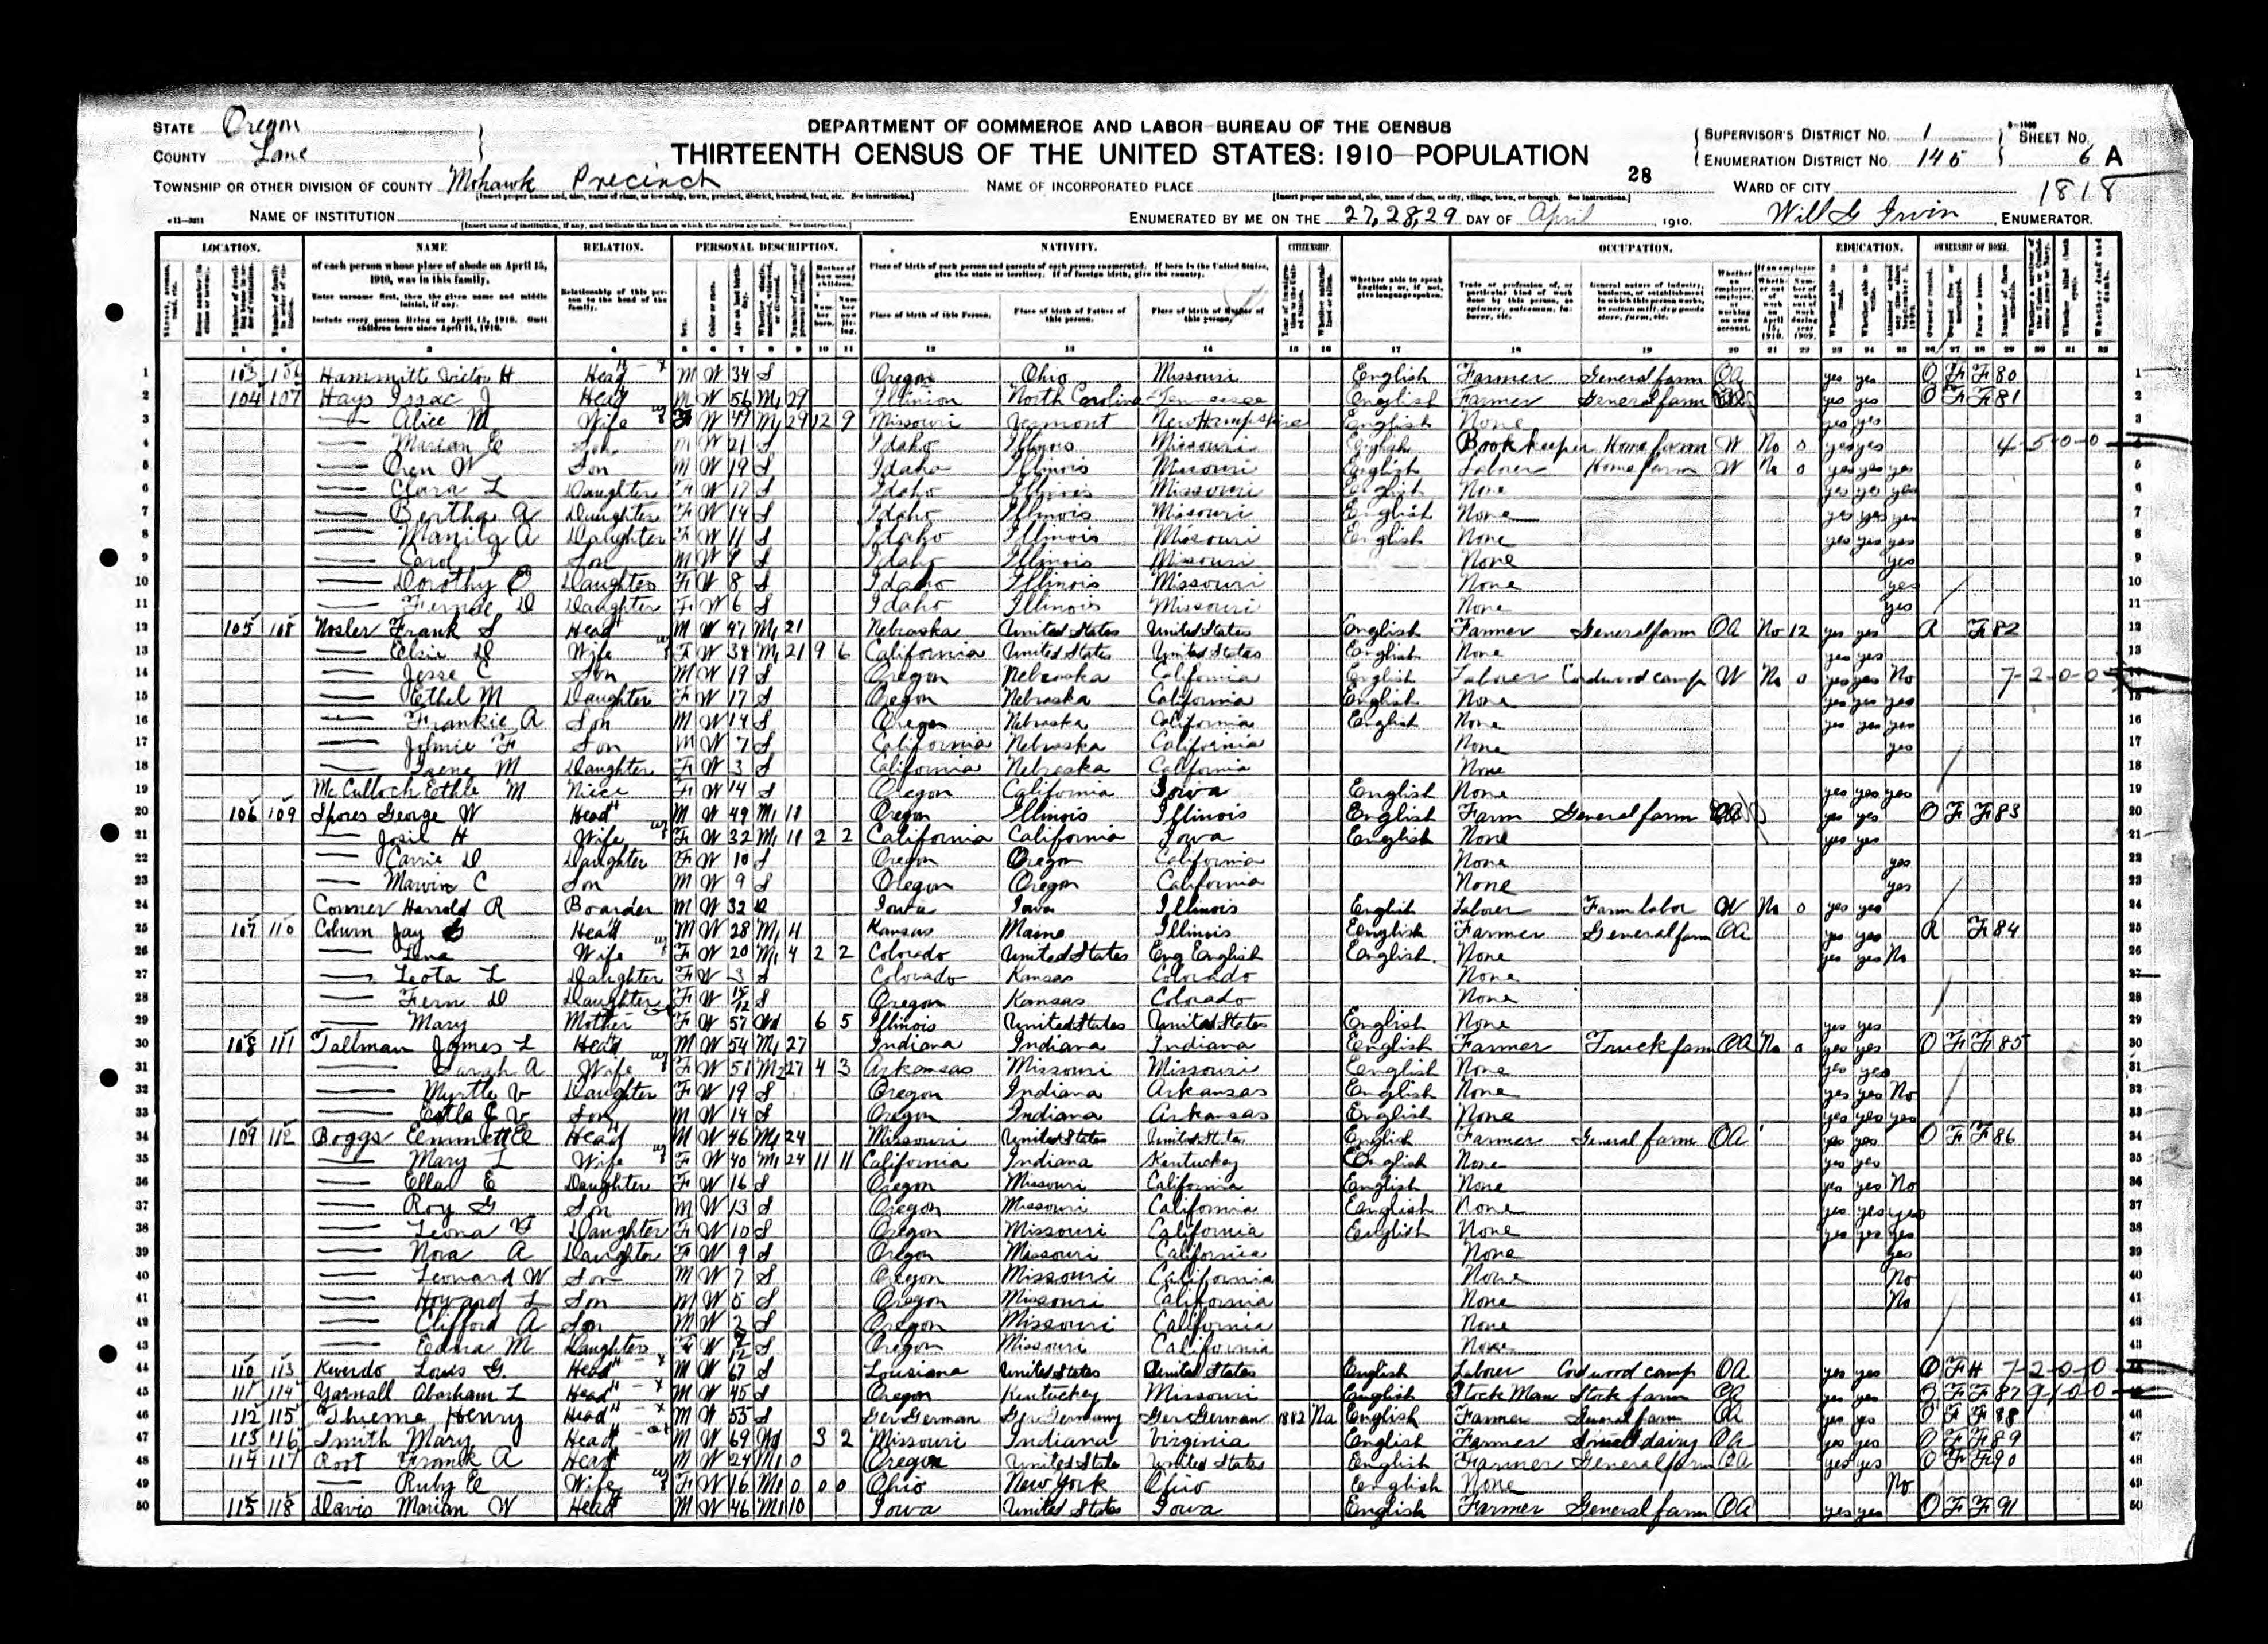 STATE Oregon
COUNTY Lane
DEPARTMENT OF COMMERCE AND LABOR—BUREAU OF THE CENSUS
THIRTEENTH CENSUS OF THE UNITED STATES: 1910—POPULATION
SUPERVISOR'S DISTRICT No. 1
ENUMERATION DISTRICT No. 145
SHEET No. 6 A
28
1818
TOWNSHIP OR OTHER DIVISION OF COUNTY Mohawk Precinct
NAME OF INCORPORATED PLACE
WARD OF CITY
NAME OF INSTITUTION
ENUMERATED BY ME ON THE 27, 28, 29 DAY OF April, 1910.
Will G Irwin, ENUMERATOR.
LOCATION. NAME RELATION. PERSONAL DESCRIPTION. NATIVITY. CITIZENSHIP. OCCUPATION. EDUCATION. OWNERSHIP OF HOME.
of each person whose place of abode on April 15, 1910, was in this family.
Enter surname first, then the given name and middle initial, if any.
Include every person living on April 15, 1910. Omit children born since April 15, 1910.
Relationship of this person to the head of the family.
Place of birth of each person and parents of each person enumerated. If born in the United States, give the state or territory; if of foreign birth, give the country.
Place of birth of this Person. Place of birth of Father of this person. Place of birth of Mother of this person.
Whether able to speak English; or, if not, give language spoken.
1 Hammitt Victor H Head M W 34 S Oregon Ohio Missouri English Farmer General farm OA yes yes O F F 80
2 104 107 Hays Issac J Head M W 56 M1 29 Illinion North Carolina Tennessee English Farmer General farm yes yes O F F 81
3 — Alice M Wife W 49 M1 29 12 9 Missouri Vermont New Hampshire English None yes yes
4 — Marion E Son M W 21 S Idaho Illinois Missouri English Book keeper Home farm W No 0 yes yes 4-5-0-0
5 — Oren W Son M W 19 S Idaho Illinois Missouri English Laborer Home farm W No 0 yes yes yes
6 — Clara L Daughter F W 17 S Idaho Illinois Missouri English None yes yes yes
7 — Bertha A Daughter F W 14 S Idaho Illinois Missouri English None yes yes yes
8 — A Daughter F W 11 S Idaho Illinois Missouri English None yes yes yes
9 — Son M W 8 S Idaho Illinois Missouri None yes
10 — Dorothy Daughter F W 8 S Idaho Illinois Missouri None yes
11 — D Daughter F W 6 S Idaho Illinois Missouri None yes
12 105 108 Nosler Frank S Head M W 47 M1 21 Nebraska United States United States English Farmer General farm OA No 12 yes yes R F 82
13 — Elsie D Wife F W 38 M1 21 9 6 California United States United States English None yes yes
14 — Jesse C Son M W 19 S Oregon Nebraska California English Laborer Cordwood camp W No 0 yes yes No 7-2-0-0
15 — Ethel M Daughter F W 17 S Oregon Nebraska California English None yes yes yes
16 — Frankie A Son M W 14 S Oregon Nebraska California English None yes yes yes
17 — Johnie F Son M W 7 S California Nebraska California None yes
18 — Irene M Daughter F W 3 S California Nebraska California None
19 McCulloch Eethle M Niece F W 14 S Oregon California Iowa English None yes yes yes
20 106 109 Spores George W Head M W 49 M1 11 Oregon Illinois Illinois English Farm General farm yes yes O F F 83
21 — Josie H Wife F W 32 M1 11 2 2 California California Iowa English None yes yes
22 — Carrie D Daughter F W 10 S Oregon Oregon California None yes
23 — Marvin C Son M W 9 S Oregon Oregon California None yes
24 Conner Harrold R Boarder M W 32 D Iowa Iowa Illinois English Laborer Farm labor W No 0 yes yes
25 107 110 Coburn Jay Head M W 28 M1 4 Kansas Maine Illinois English Farmer General farm OA yes yes R F 84
26 — Lena Wife F W 20 M1 4 2 2 Colorado United States Eng English English None yes yes No
27 — Leota L Daughter F W 3 S Colorado Kansas Colorado None
28 — Fern D Daughter F W S Oregon Kansas Colorado None
29 — Mary Mother F W 57 Wd 6 5 Illinois United States United States English None yes yes
30 108 111 Tallman James L Head M W 54 M1 27 Indiana Indiana Indiana English Farmer Truck farm OA No 0 yes yes O F F 85
31 — Sarah A Wife F W 51 M2 27 4 3 Arkansas Missouri Missouri English None yes yes
32 — Myrtle V Daughter F W 19 S Oregon Indiana Arkansas English None yes yes No
33 — V Son M W 14 S Oregon Indiana Arkansas English None yes yes yes
34 109 112 Boggs Emmett E Head M W 46 M1 24 Missouri United States United States English Farmer General farm OA yes yes O F F 86
35 — Mary L Wife F W 40 M1 24 11 11 California Indiana Kentuckey English None yes yes
36 — Ella E Daughter F W 16 S Oregon Missouri California English None yes yes No
37 — Roy G Son M W 13 S Oregon Missouri California English None yes yes yes
38 — Leona F Daughter F W 10 S Oregon Missouri California English None yes yes yes
39 — Nora A Daughter F W 9 S Oregon Missouri California None yes
40 — Leonard W Son M W 7 S Oregon Missouri California None No
41 — Howard L Son M W 5 S Oregon Missouri California None No
42 — Clifford A Son M W 2 S Oregon Missouri California None
43 — Edna M Daughter F W S Oregon Missouri California None
44 110 113 Louis G. Head M W 67 S Louisiana United States United States English Laborer Cordwood camp OA yes yes O F H 7-2-0-0
45 111 114 Yarnall Abarham L Head M W 45 S Oregon Kentuckey Missouri English Stock Man Stock farm OA yes yes O F F 87 9-1-0-0
46 112 115 Thieme Henry Head M W 55 S Ger German Ger Germany Ger German 1882 Na English Farmer General farm OA yes yes O F F 88
47 113 116 Smith Mary Head M W 69 Wd 3 2 Missouri Indiana Virginia English Farmer Small dairy OA yes yes O F F 89
48 114 117 Root Frank A Head M W 24 M1 0 Oregon United State United States English Farmer General farm OA yes yes O F F 90
49 — Ruby E Wife F W 16 M1 0 0 0 Ohio New York Ohio English None No
50 115 118 Davis Marion W Head M W 46 M1 10 Iowa United States Iowa English Farmer General farm OA yes yes O F F 91